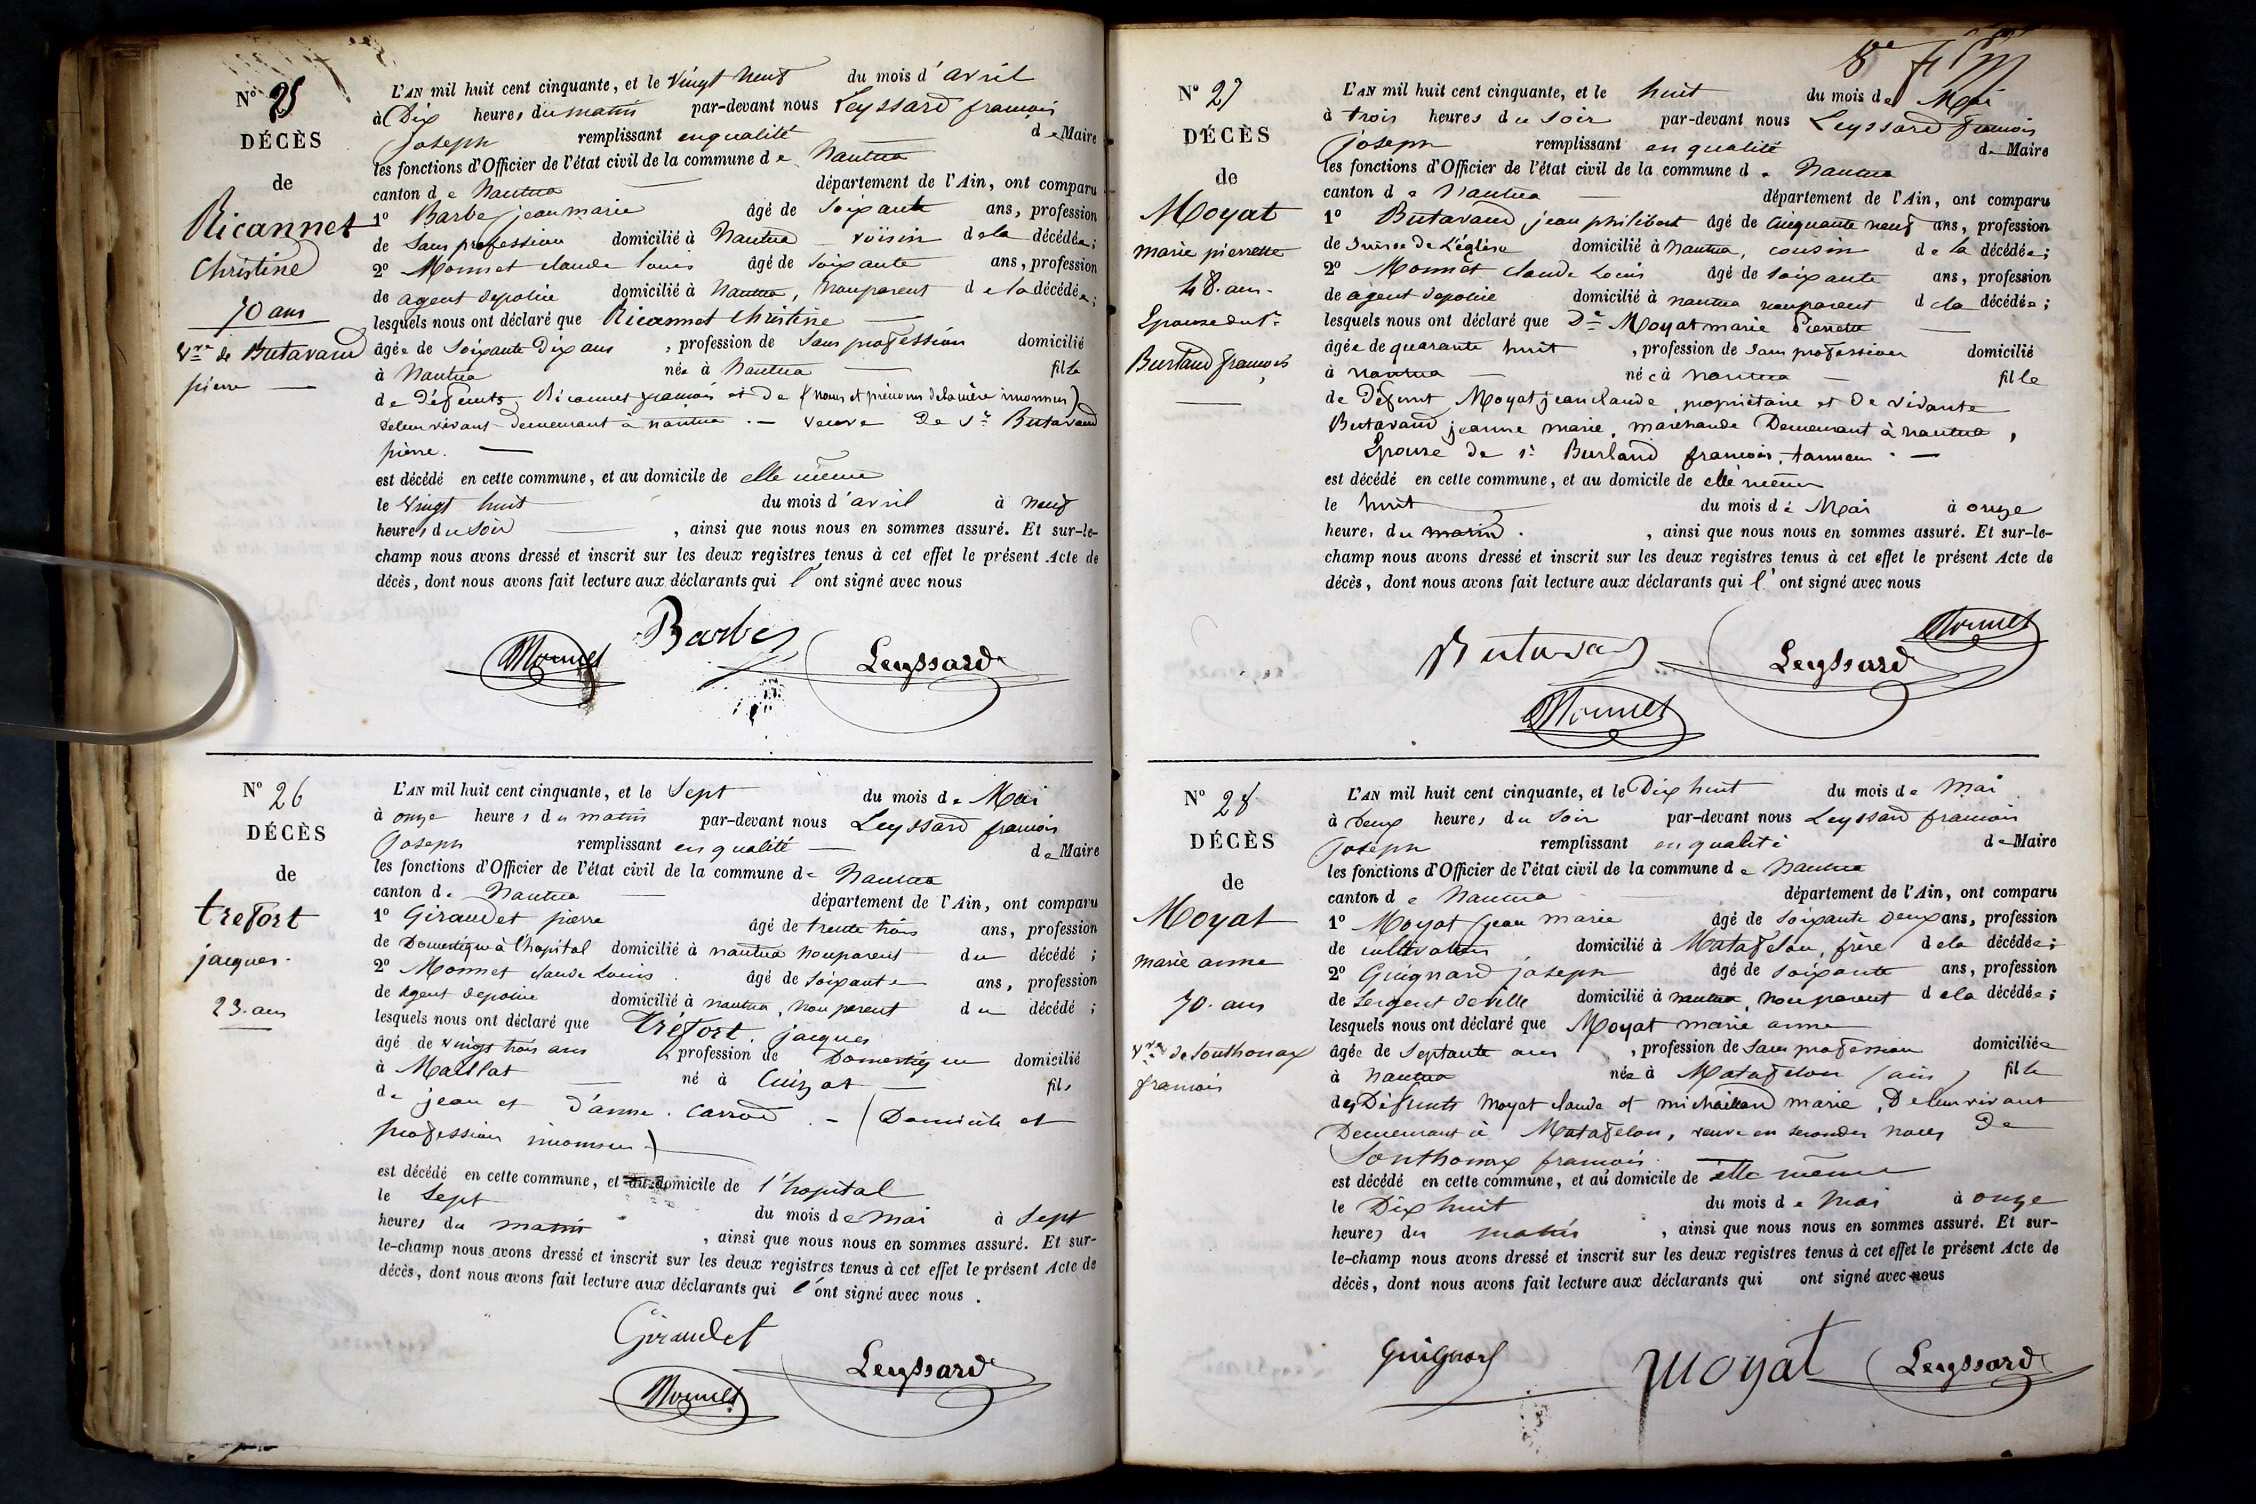 N° 25
DÉCÈS
de
Ricannet
Christine
70 ans
Vve de Butavand
pierre
L'AN mil huit cent cinquante, et le vingt neuf du mois d'avril
à Dix heures du matin par-devant nous Leyssard françois
Joseph remplissant en qualité de Maire
les fonctions d'Officier de l'état civil de la commune de Nantua
canton de Nantua département de l'Ain, ont comparu
1° Barbe jean marie âgé de soixante ans, profession
de Sans profession domicilié à Nantua voisin de la décédée;
2° Monnet claude louis âgé de soixante ans, profession
de agent de police domicilié à Nantua, non parent de la décédée;
lesquels nous ont déclaré que Ricannet christine
âgée de soixante Dix ans, profession de sans profession domicilié
à Nantua née à Nantua fille
de Défunts Ricannet françois et de (noms et prénoms de la mère inconnus)
de leur vivant demeurant à nantua. - veuve De Sr Butavand
pierre. —
est décédé en cette commune, et au domicile de elle même
le vingt huit du mois d'avril à neuf
heures du soir, ainsi que nous nous en sommes assuré. Et sur-le-
champ nous avons dressé et inscrit sur les deux registres tenus à cet effet le présent Acte de
décès, dont nous avons fait lecture aux déclarants qui l'ont signé avec nous
Barbe
Monnet Leyssard
N° 26
DÉCÈS
de
trefort
jacques.
23. ans
L'AN mil huit cent cinquante, et le sept du mois de Mai
à onze heures du matin par-devant nous Leyssard françois
Joseph remplissant en qualité — de Maire
les fonctions d'Officier de l'état civil de la commune de Nantua
canton de Nantua département de l'Ain, ont comparu
1° Giraudet pierre âgé de trente trois ans, profession
de Domestique à l'hopital domicilié à nantua non parent du décédé;
2° Monnet claude Louis âgé de soixante ans, profession
de agent de police domicilié à nantua, non parent du décédé;
lesquels nous ont déclaré que tréfort. jacques
âgé de vingt trois ans, profession de Domestique domicilié
à Maillat né à Cuizat fils
de jean et d'anne. Carrod. - (Domicile et
profession inconnu)
est décédé en cette commune, et au domicile de l'hopital
le sept du mois de mai à sept
heures du matin, ainsi que nous nous en sommes assuré. Et sur-
le-champ nous avons dressé et inscrit sur les deux registres tenus à cet effet le présent Acte de
décès, dont nous avons fait lecture aux déclarants qui l'ont signé avec nous.
Giraudet
Monnet Leyssard
N° 27
DÉCÈS
de
Moyat
marie pierrette
48. ans.
Epouse du Sr
Burland françois
L'AN mil huit cent cinquante, et le huit du mois de Mai
à trois heures du soir par-devant nous Leyssard françois
Joseph remplissant en qualité de Maire
les fonctions d'Officier de l'état civil de la commune de Nantua
canton de Nantua département de l'Ain, ont comparu
1° Butavand jean philibert âgé de cinquante neuf ans, profession
de suisse de l'église domicilié à Nantua, cousin de la décédée;
2° Monnet claude Louis âgé de soixante ans, profession
de agent de police domicilié à nantua non parent de la décédée;
lesquels nous ont déclaré que De Moyat marie Pierrette
âgée de quarante huit, profession de sans profession domicilié
à nantua née à nantua fille
de Défunt Moyat jean claude, propriétaire et De vivante
Butavand jeanne marie, marchande Demeurant à nantua,
Epouse de Sr Burland françois, tanneur. —
est décédé en cette commune, et au domicile de elle même
le huit du mois de Mai à onze
heures du matin., ainsi que nous nous en sommes assuré. Et sur-le-
champ nous avons dressé et inscrit sur les deux registres tenus à cet effet le présent Acte de
décès, dont nous avons fait lecture aux déclarants qui l'ont signé avec nous
Monnet
Butavand Leyssard
Monnet
N° 28
DÉCÈS
de
Moyat
marie anne
70. ans
Vve de Southonax
francois
L'AN mil huit cent cinquante, et le Dix huit du mois de Mai
à Deux heures du soir par-devant nous Leyssard francois
Joseph remplissant en qualité de Maire
les fonctions d'Officier de l'état civil de la commune de Nantua
canton de Nantua département de l'Ain, ont comparu
1° Moyat jean marie âgé de soixante Deux ans, profession
de cultivateur domicilié à Matafelon, frère de la décédée;
2° Guignard joseph âgé de soixante ans, profession
de Sergent de ville domicilié à nantua, non parent de la décédée;
lesquels nous ont déclaré que Moyat marie anne
âgée de septante ans, profession de sans profession domiciliée
à Nantua née à Matafelon (ain) fille
des Défunts Moyat claude et michaillard marie, De leur vivant
Demeurant à Matafelon, veuve en secondes noces De
Southonax francois.
est décédé en cette commune, et au domicile de elle même
le Dix huit du mois de Mai à onze
heures du matin, ainsi que nous nous en sommes assuré. Et sur-
le-champ nous avons dressé et inscrit sur les deux registres tenus à cet effet le présent Acte de
décès, dont nous avons fait lecture aux déclarants qui ont signé avec nous
Guignard Moyat Leyssard